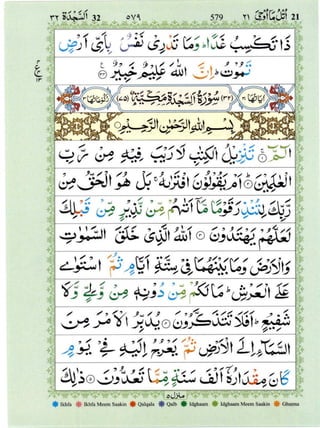 ٣٢ السَّجْدَة 32 ٥٧٩ 579 ٢١ اُتْلُ مَآ اُوْحِىَ 21
ذَا تَكْسِبُ غَدًا ؕ وَمَا تَدْرِىْ نَفْسٌۢ بِاَىِّ اَرْضٍ
تَمُوْتُ ؕ اِنَّ اللّٰهَ عَلِيْمٌ خَبِيْرٌ
اٰيَاتُهَا ٣٠ (٣٢) سُوْرَةُ السَّجْدَةِ مَكِّيَّةٌ (٧٥) رُكُوْعَاتُهَا ٣
بِسْمِ اللّٰهِ الرَّحْمٰنِ الرَّحِيْمِ
الٓمّٓ ۚ تَنْزِيْلُ الْكِتٰبِ لَا رَيْبَ فِيْهِ مِنْ رَّبِّ
الْعٰلَمِيْنَ ؕ اَمْ يَقُوْلُوْنَ افْتَرٰىهُ ۚ بَلْ هُوَ الْحَقُّ مِنْ
رَّبِّكَ لِتُنْذِرَ قَوْمًا مَّاۤ اَتٰىهُمْ مِّنْ نَّذِيْرٍ مِّنْ قَبْلِكَ
لَعَلَّهُمْ يَهْتَدُوْنَ اَللّٰهُ الَّذِىْ خَلَقَ السَّمٰوٰتِ
وَالْاَرْضَ وَمَا بَيْنَهُمَا فِىْ سِتَّةِ اَيَّامٍ ثُمَّ اسْتَوٰى
عَلَى الْعَرْشِ ؕ مَا لَكُمْ مِّنْ دُوْنِهٖ مِنْ وَّلِىٍّ وَّلَا
شَفِيْعٍ ؕ اَفَلَا تَتَذَكَّرُوْنَ يُدَبِّرُ الْاَمْرَ مِنَ
السَّمَآءِ اِلَى الْاَرْضِ ثُمَّ يَعْرُجُ اِلَيْهِ فِىْ يَوْمٍ
كَانَ مِقْدَارُهٗۤ اَلْفَ سَنَةٍ مِّمَّا تَعُدُّوْنَ ذٰلِكَ
منزل ٥
Ikhfa Ikhfa Meem Saakin Qalqala Qalb Idghaam Idghaam Meem Saakin Ghunna